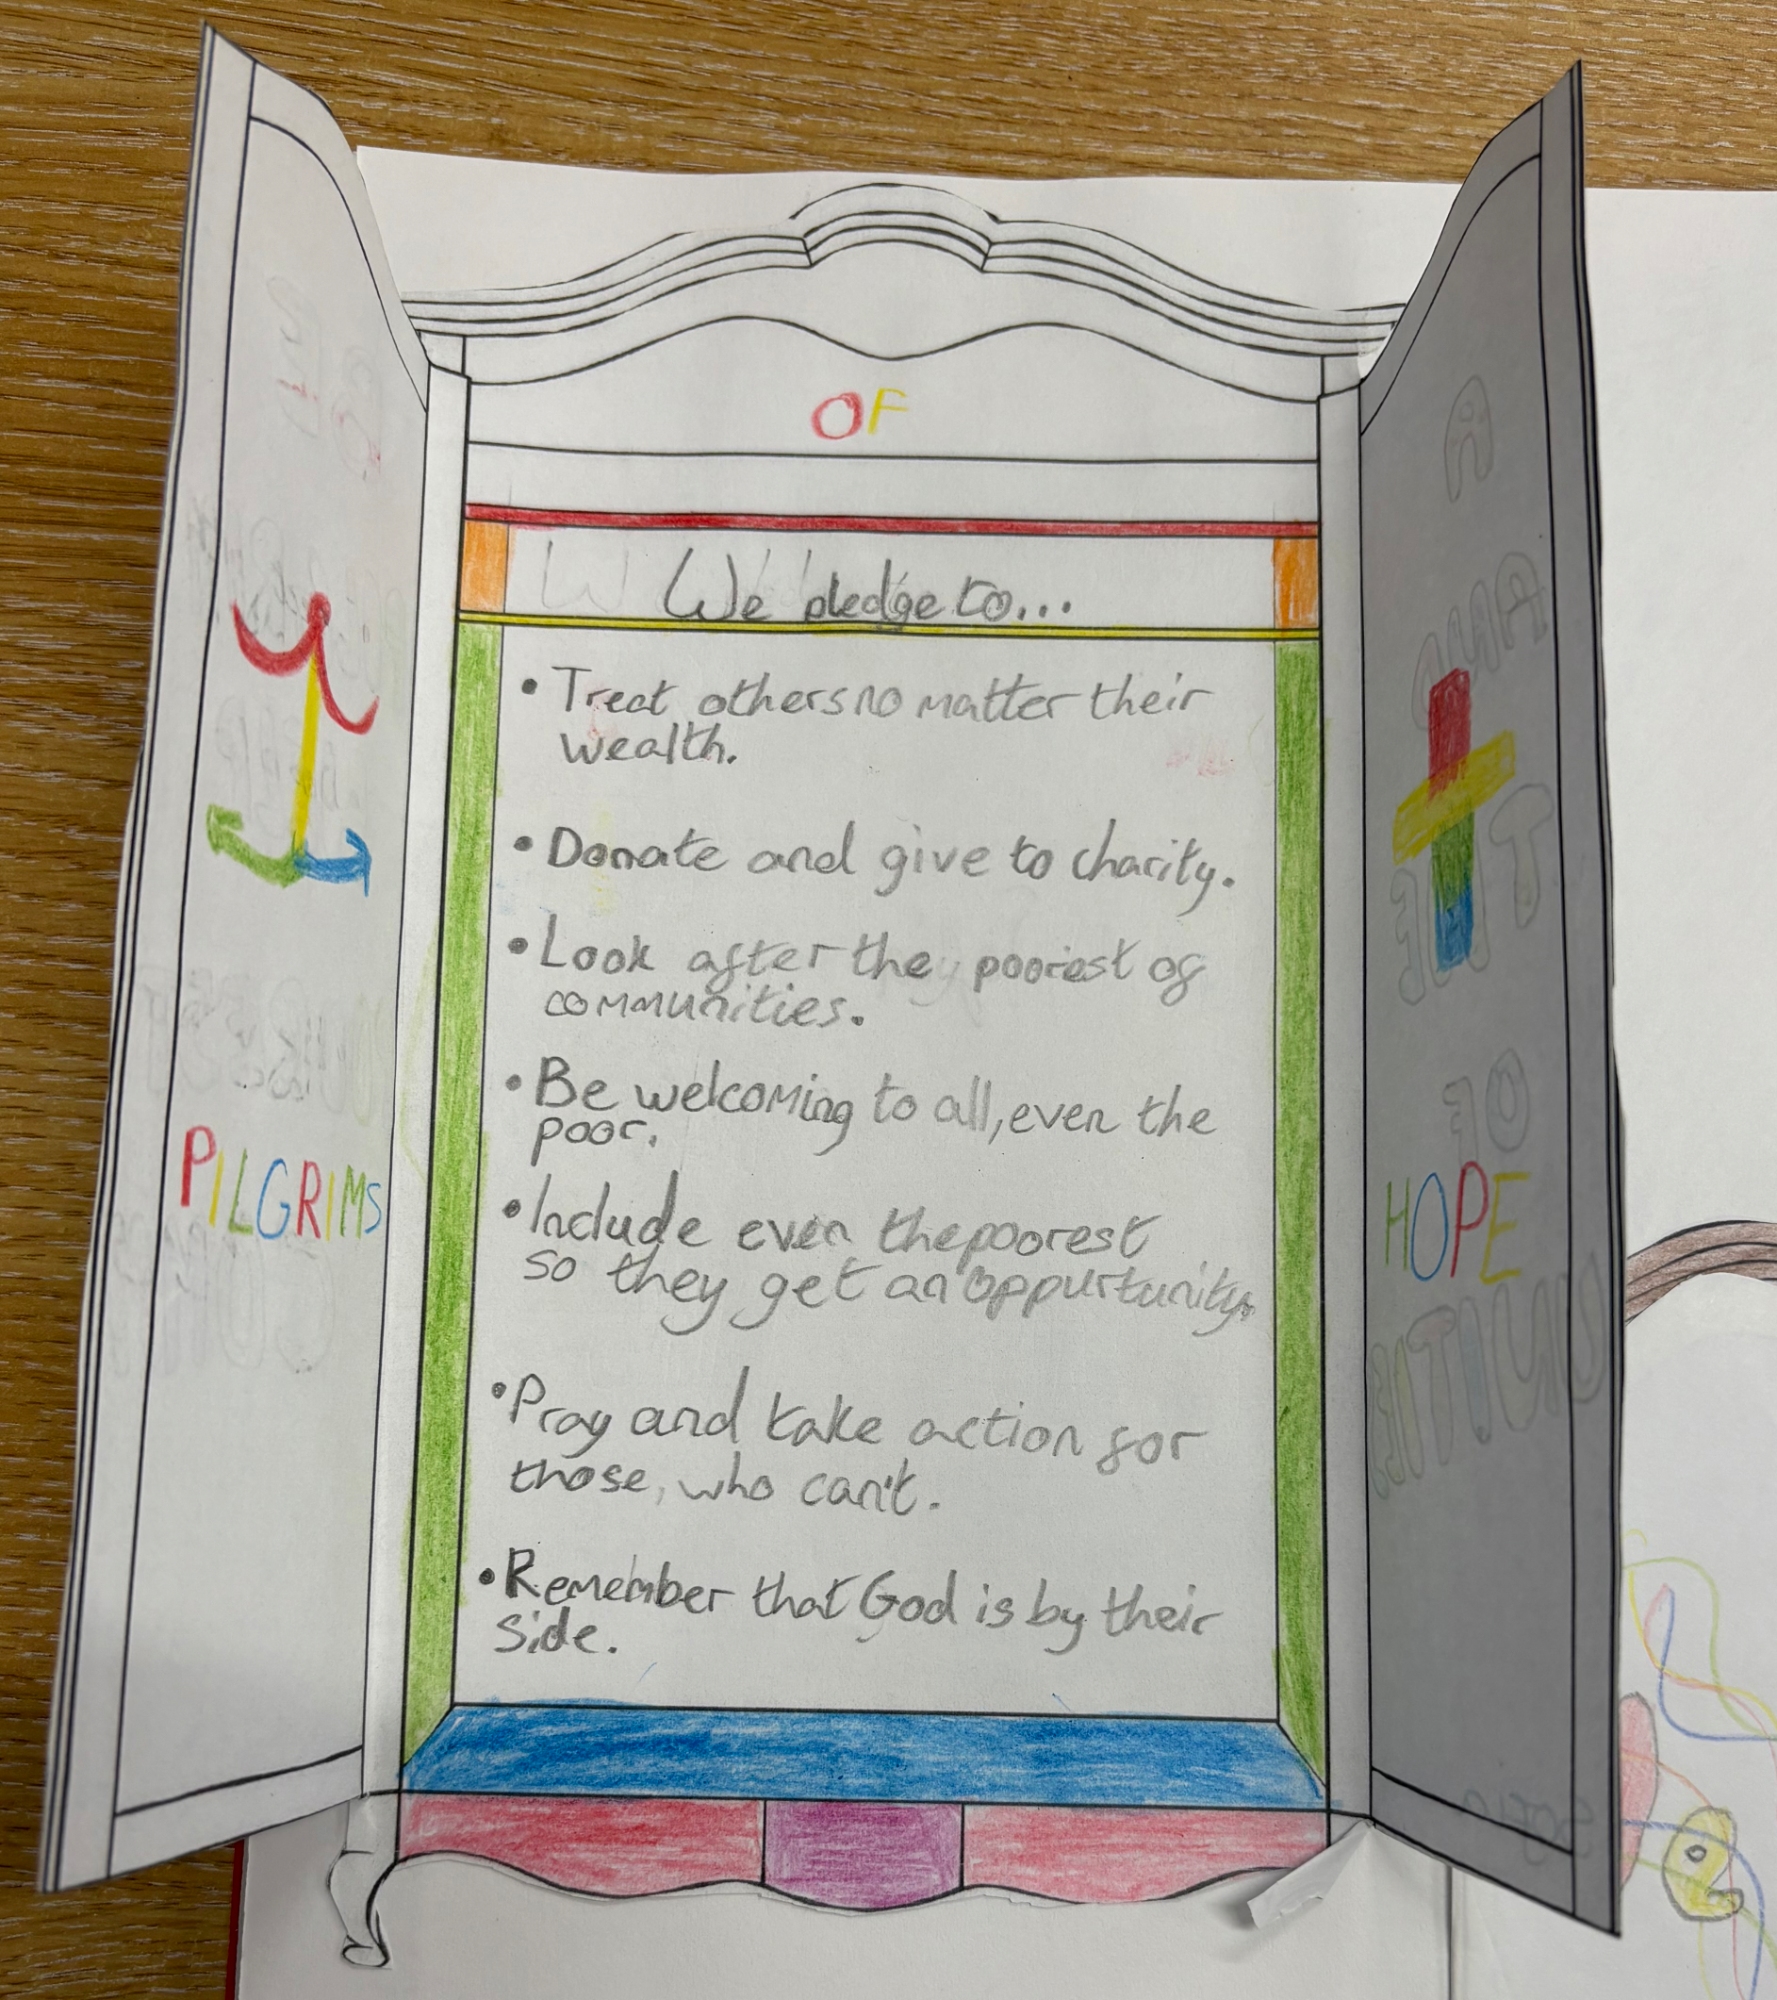 OF
PILGRIMS
HOPE
We pledge to...
• Treat others no matter their
wealth.
• Donate and give to charity.
• Look after the poorest of
communities.
• Be welcoming to all, even the
poor.
• Include even the poorest
so they get an oppurtunity.
• Pray and take action for
those, who can't.
• Remember that God is by their
side.